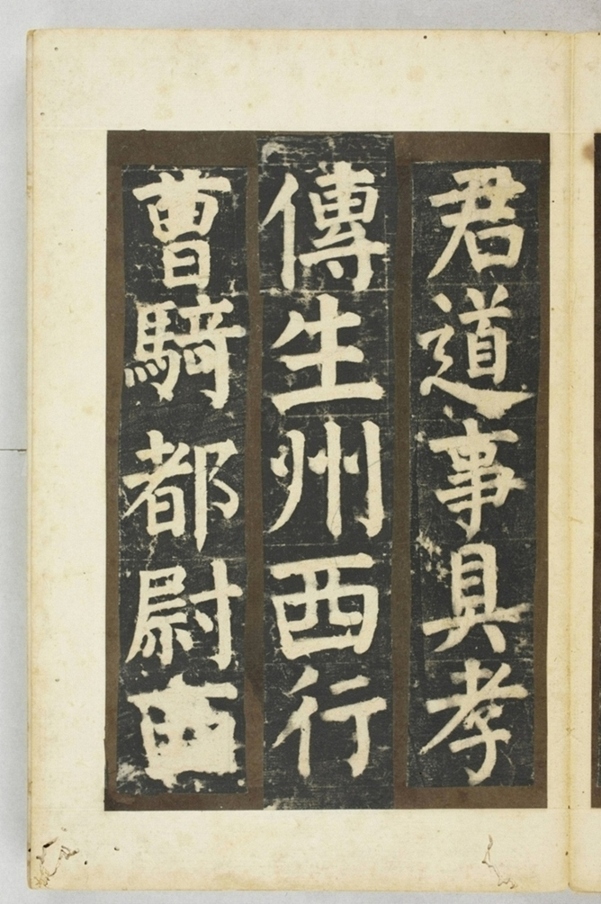 君道事具孝
傳生州西行
曹騎都尉西